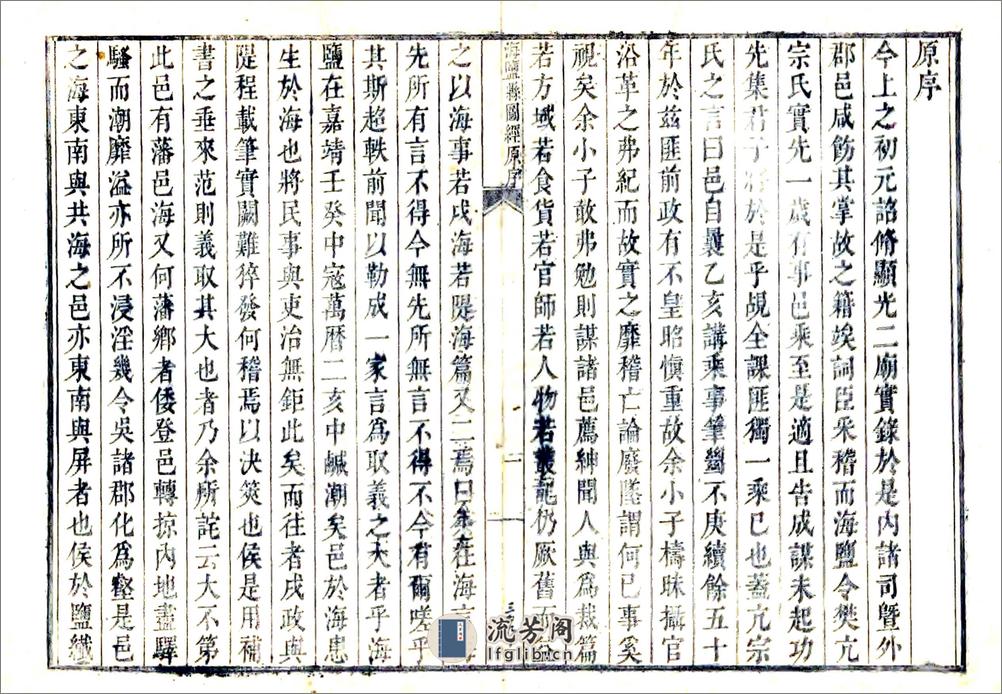 原序
今上之初元詔脩顯光二廟實錄於是內諸司暨外
郡邑咸飭其掌故之籍竢詞臣采稽而海鹽令樊亢
宗氏實先一歲有事邑乘至是適且告成謀未起功
先集君子於是乎覘全課匪獨一乘已也蓋亢宗
氏之言曰邑自曩乙亥講乘事筆蠲不庚續餘五十
年於茲匪前政有不皇昭慎重故余小子檮昧攝官
沿革之弗紀而故實之靡稽亡論廢墜謂何已事奚
視矣余小子敢弗勉則謀諸邑薦紳聞人與為裁篇
若方域若食貨若官師若人物若叢記仍厥舊而
海鹽縣圖經 原序
一
三
之以海事若戍海若隄海篇又二焉曰余在海言
先所有言不得今無先所無言不得不今有爾嗟乎
其斯超軼前聞以勒成一家言為取義之大者乎海
鹽在嘉靖壬癸中寇萬曆二亥中鹹潮矣邑於海患
生於海也將民事與吏治無鉅此矣而往者戍政與
隄程載筆實闕難猝發何稽焉以決筴也侯是用補
書之垂來范則義取其大也者乃余所詫云大不第
此邑有藩邑海又何藩鄉者倭登邑轉掠內地盡驛
騷而潮靡溢亦所不浸淫幾令吳諸郡化為壑是邑
之海東南與共海之邑亦東南與屏者也侯於鹽纖
流芳阁
lfglib.cn